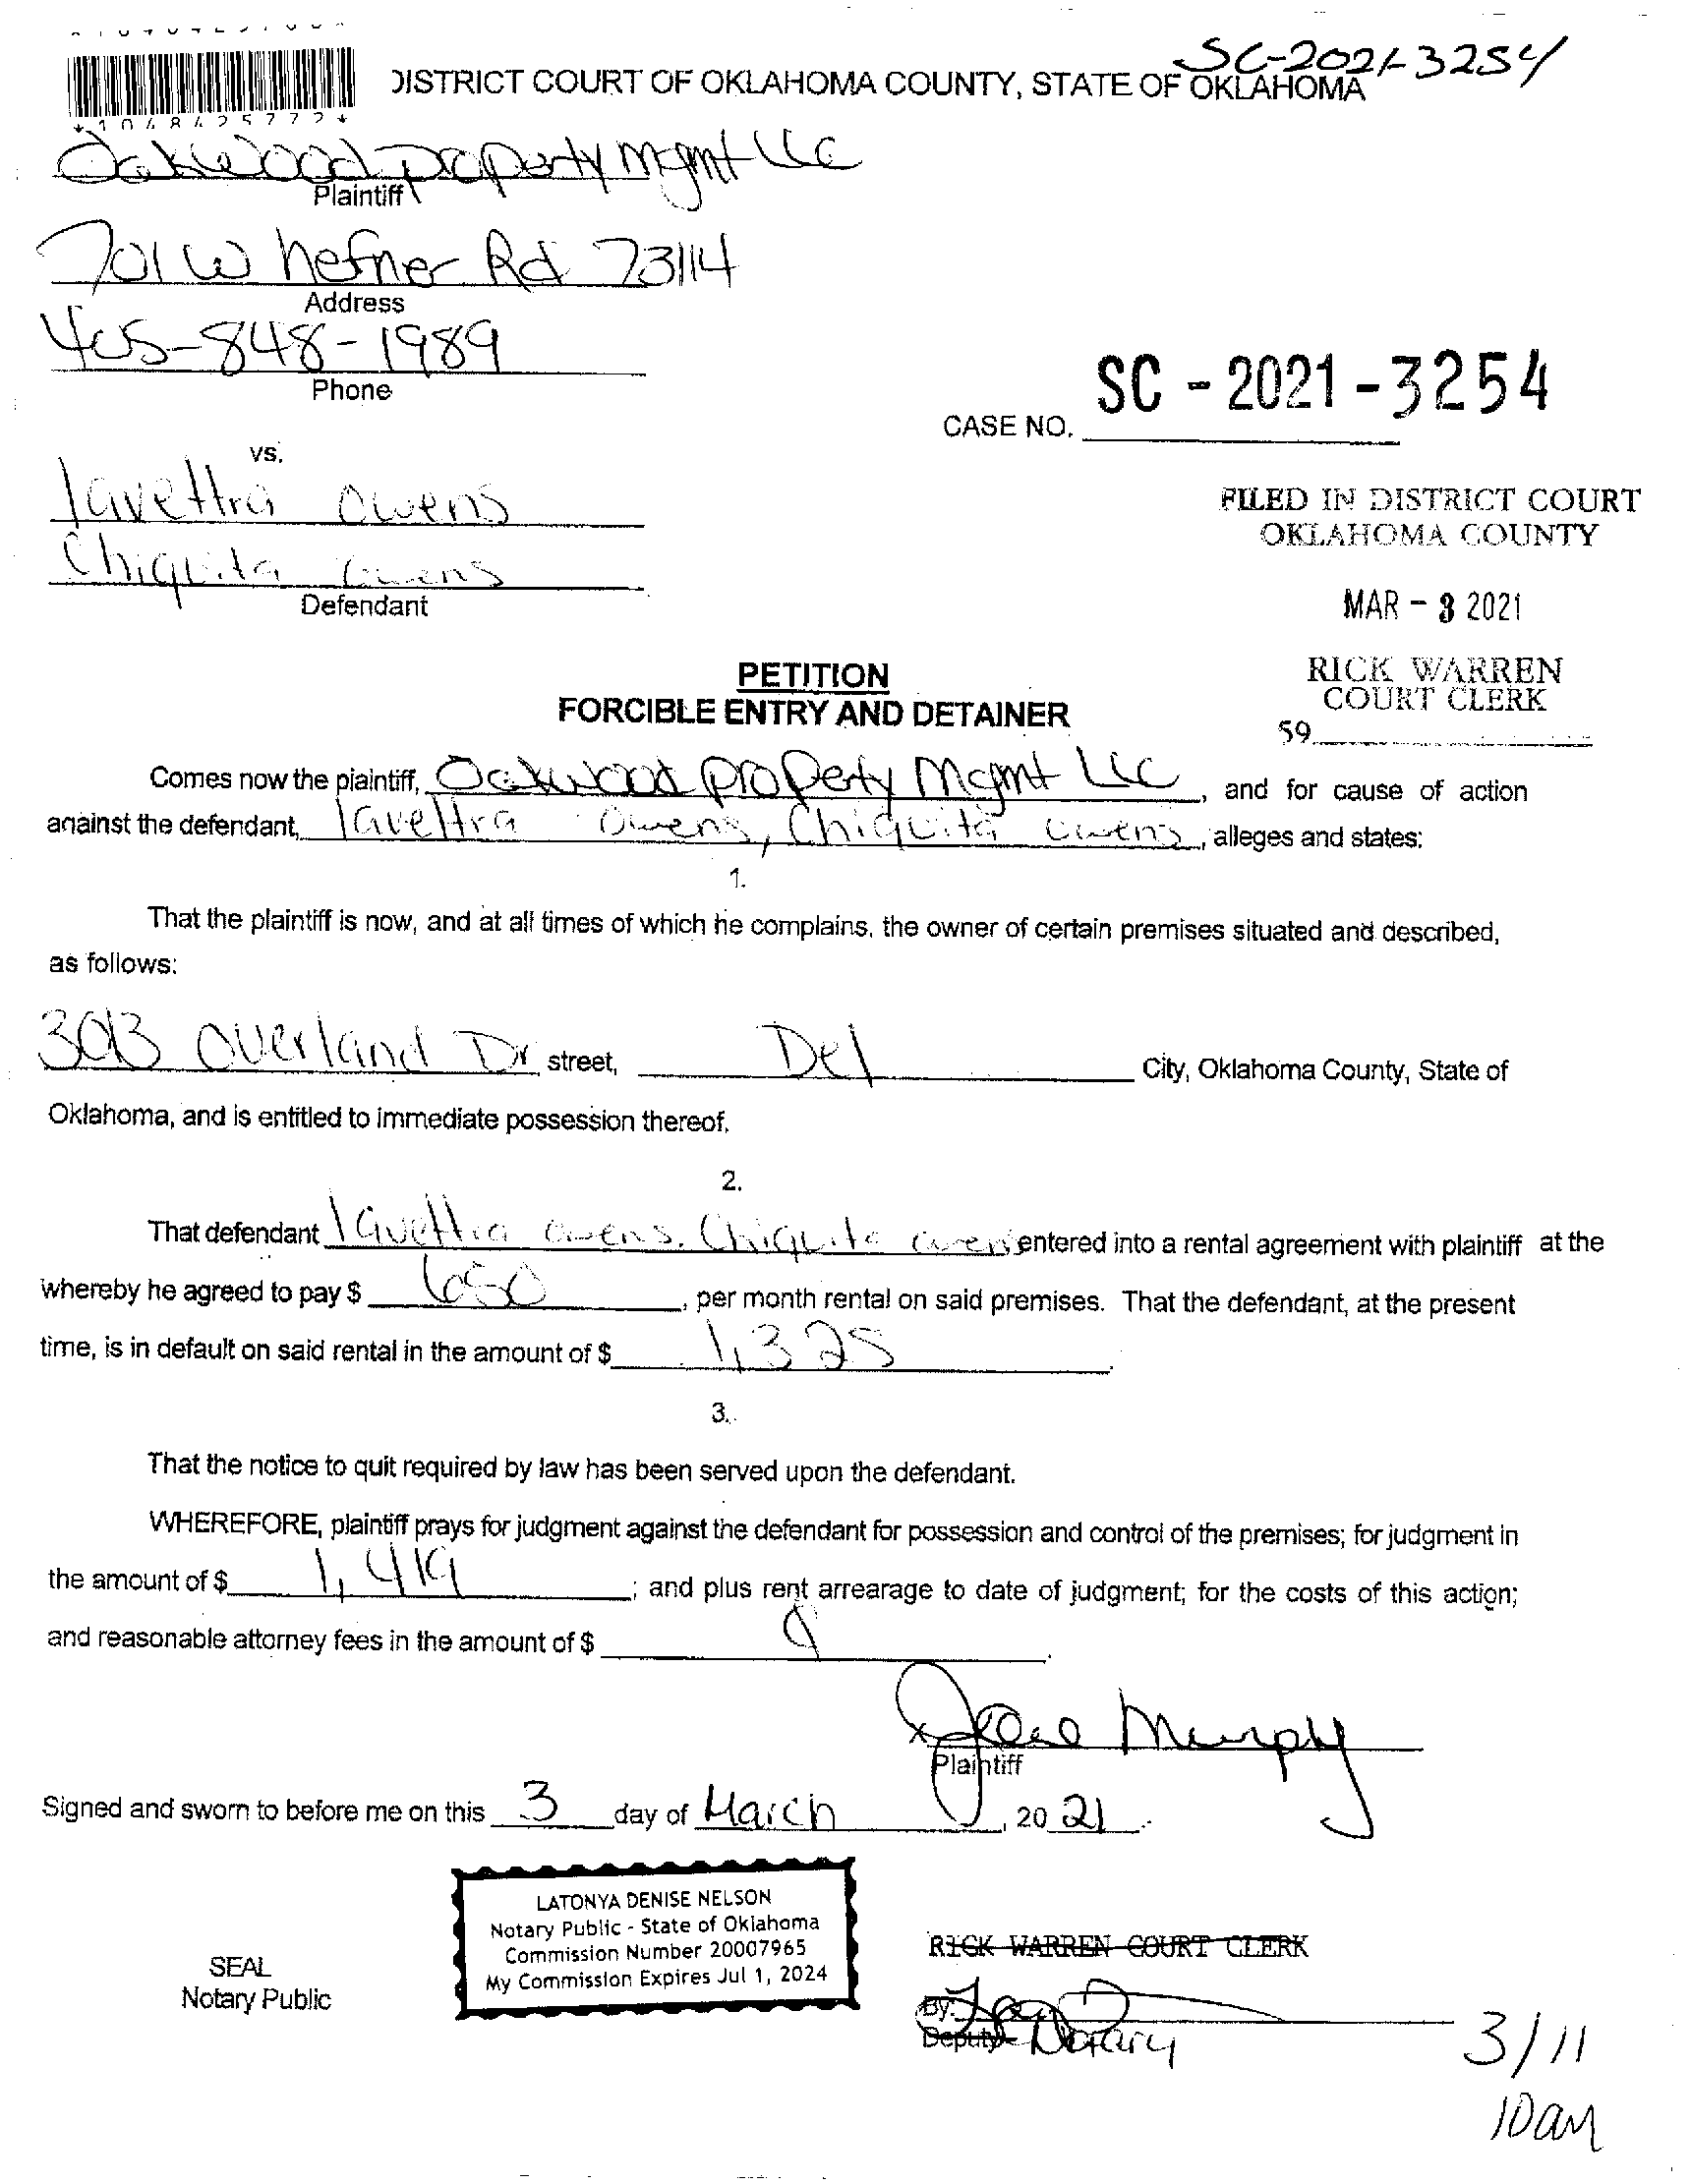 SC-2021-3254
DISTRICT COURT OF OKLAHOMA COUNTY, STATE OF OKLAHOMA
*1048425772*
Oakwood Property Mgmt LLC
Plaintiff
701 W hefner Rd 73114
Address
405-848-1989
Phone
SC - 2021 - 3254
CASE NO.
vs.
lavettra Owens
Chiquita Owens
Defendant
FILED IN DISTRICT COURT
OKLAHOMA COUNTY
MAR - 3 2021
RICK WARREN
COURT CLERK
59
PETITION
FORCIBLE ENTRY AND DETAINER
Comes now the plaintiff, Oakwood Property Mgmt LLC, and for cause of action
against the defendant, lavettra Owens, Chiquita Owens, alleges and states:
1.
That the plaintiff is now, and at all times of which he complains, the owner of certain premises situated and described,
as follows:
3013 Overland Dr street, Del City, Oklahoma County, State of
Oklahoma, and is entitled to immediate possession thereof.
2.
That defendant lavettra owens, Chiquita owens entered into a rental agreement with plaintiff at the
whereby he agreed to pay $ 650, per month rental on said premises. That the defendant, at the present
time, is in default on said rental in the amount of $ 1,325.
3.
That the notice to quit required by law has been served upon the defendant.
WHEREFORE, plaintiff prays for judgment against the defendant for possession and control of the premises; for judgment in
the amount of $ 1,419; and plus rent arrearage to date of judgment; for the costs of this action;
and reasonable attorney fees in the amount of $
x Murphy
Plaintiff
Signed and sworn to before me on this 3 day of March, 20 21.
LATONYA DENISE NELSON
Notary Public - State of Oklahoma
Commission Number 20007965
My Commission Expires Jul 1, 2024
SEAL
Notary Public
RICK WARREN COURT CLERK
By:
Deputy Notary
3/11
10am